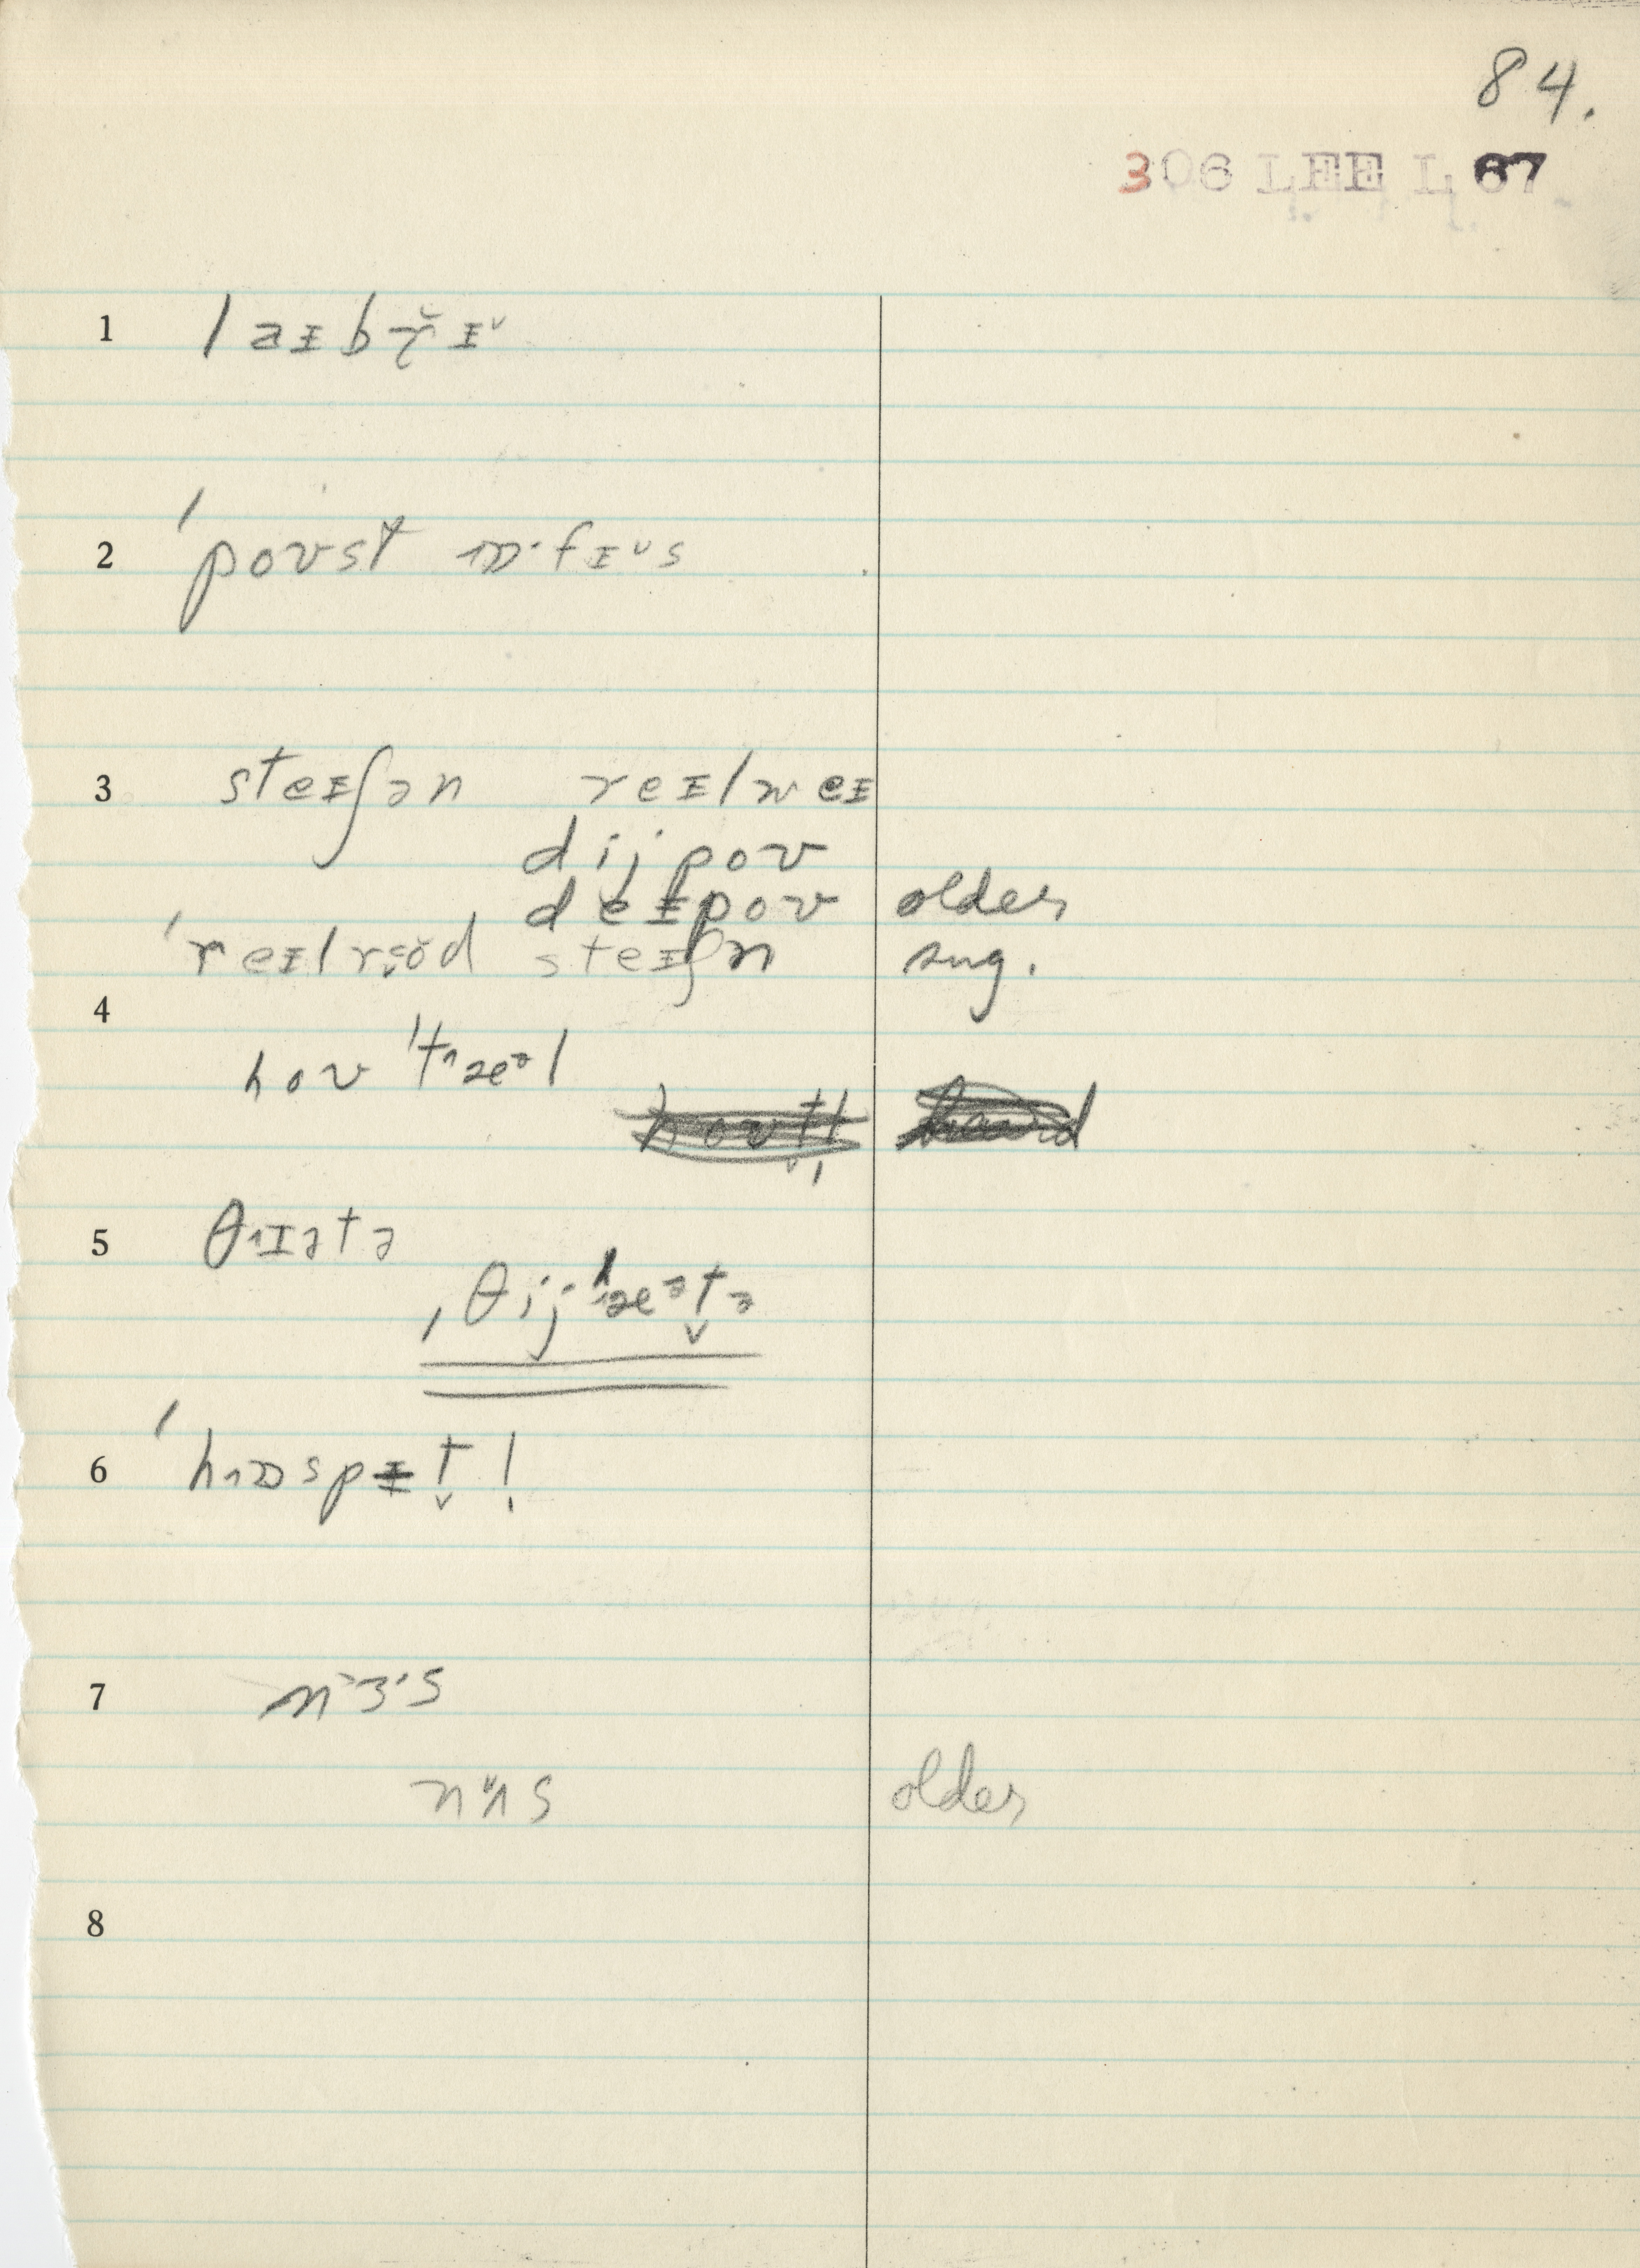 84.
306 LEE L 67
1 laɪbrɪ
2 ˈpoʊst ɒfɪs
3 steɪʃən reɪlweɪ
dijpoʊ
deɪpoʊ older
ˈreɪlroəd steɪʃn sug.
4
hoʊˈtæəl
5 θɪətə
ˌθijˈæətə
6 ˈhɒspɪt!
7 nɜ·s
nʌs older
8